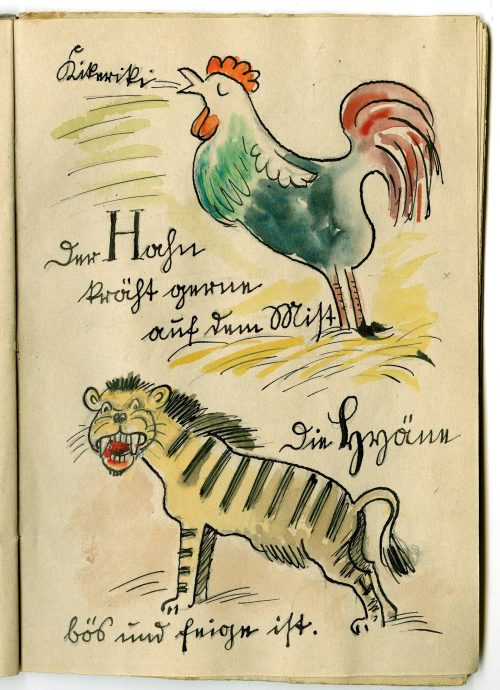 Kikeriki
Der Hahn
kräht gerne
auf dem Mist
Die Hyäne
bös und feige ist.